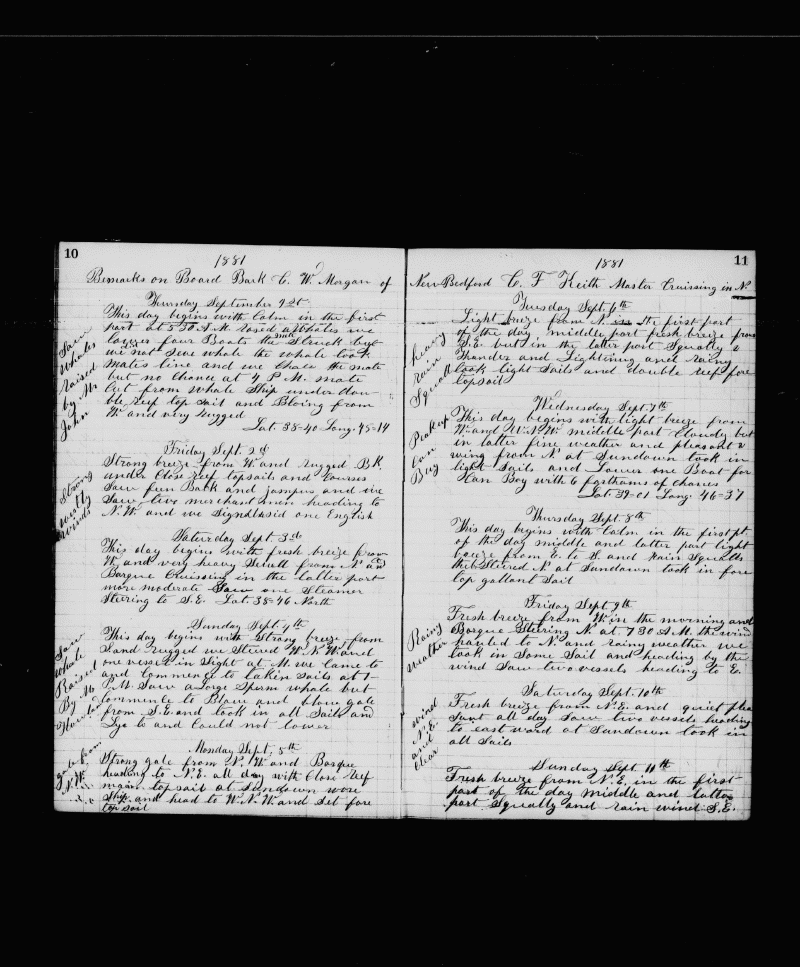 10
1881
Remarks on Board Bark C. W. Morgan of
Thursday September 1st
This day begins with Calm in the first
part at 5 30 A.M. rased whales we
lower four Boats the mate Struck but
we not save whale the whale took
mates line and we Chace the mate
but no Chance at 4 P.M. mate
Cut from whale Ship under dou-
ble reef top sail and Bloing from
W. and very rugged
Lat. 38-40 Long. 45-14
Saw
Whales
raised
by Mr
John
Friday Sept. 2d
Strong breeze from W. and rugged BK.
under Close reef topsails and Courses
Saw finn Back and jumpers and we
Saw two merchant men heading to
N.W. and we Signalised one English
Strong
westly
winds
Saturday Sept 3d
This day begins with fresh breeze from
W. and very heavy Swell from N. and
Barque Cruissing in the latter part
more moderate Saw one Steamer
Steering to S.E. Lat. 38-46 North
Sunday Sept. 4th
This day begins with Strong breeze from
S.and rugged we Steired W.N.W. and
one vessel in Sight at M. we Came to
and Commence to takin sails at 1-
P.M. Saw a large Sperm whale but
Commence to Blow and blow gale
from S.E. and took in all Sails and
Lye to and Could not lower
Saw
whale
Raised
By Mr
Monday Sept. 5th
Strong gale from N.W. and Barque
heading to N.E. all day with Close reef
main top sail at Sundown wore
Ship and head to W.N.W. and Set fore
top sail
gale from
N.W.
11
1881
New Bedford C. F Keith Master Cruissing in N.
Tuesday Sept. 6th
Light breeze from N. in the first part
of the day middle part fresh breeze from
S.E. but in the latter part Squally &
Thunder and Lightning and rainy
took light Sails and double reef fore
topsail
heavy
rain
Squall
Wednesday Sept. 7th
This day begins with light breeze from
W. and W.N.W. middle part Cloudy but
in latter fine weather and pleasant &
wing from N. at Sundown took in
light Sails and Lower one Boat for
Can Boy with 6 farthoms of Chaines
Lat 39-01 Long. 46-37
Peakup
Can
Buy
Thursday Sept. 8th
This day begins with Calm in the first pt.
of the day middle and latter part light
breeze from E. to S. and Rain Squalls
the b Steired N at Sundown took in fore
top gallant Sail
Friday Sept. 9th
Fresh breeze from W. in the morning and
Barque Steering N. at 7 30 A.M. the wind
hauled to N. and rainy weather we
took in Some Sail and heading by the
wind Saw two vessels heading to E.
Rainy
weather
Saturday Sept. 10th
Fresh breeze from N.E. and quiet plea
sant all day Saw two vessels heading
to east ward at Sundown took in
all Sails
wind
N.E.
and
Clear
Sunday Sept. 11th
Fresh breeze from N.E. in the first
part of the day middle and latter
part Squally and rain wind S.E.